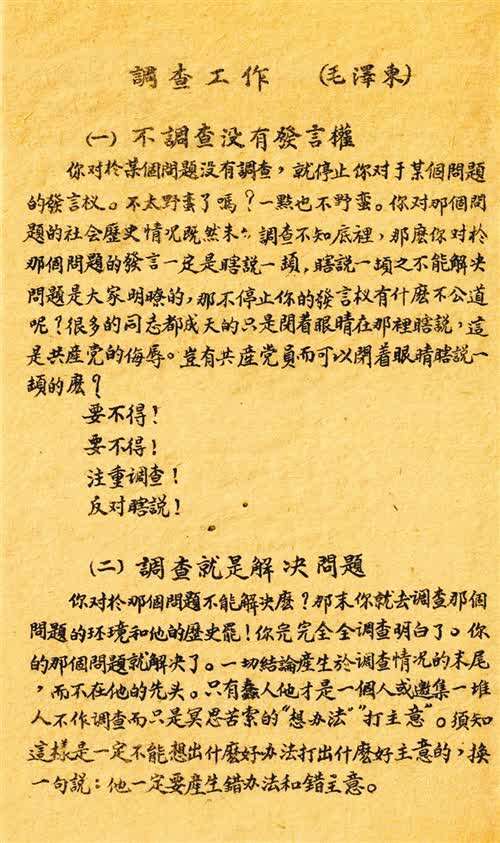 調查工作 (毛澤東)
(一)不調查没有發言權
你对於某個問題没有調查，就停止你对于某個問題
的發言权。不太野蛮了嗎？一點也不野蛮。你对那個問
題的社会歷史情况既然未 調查不知底裡，那麽你对於
那個問題的發言一定是瞎説一頓，瞎説一頓之不能解决
問題是大家明瞭的，那不停止你的發言权有什麽不公道
呢？很多的同志都成天的只是閉着眼睛在那裡瞎説，這
是共產党的侮辱。豈有共產党員而可以閉着眼睛瞎説一
頓的麽？
要不得！
要不得！
注重調查！
反对瞎説！
(二)調查就是解决問題
你对於那個問題不能解决麽？那末你就去調查那個
問題的环境和他的歷史罷！你完完全全調查明白了。你
的那個問題就解决了。一切結論產生於調查情况的末尾
，而不在他的先头。只有蠢人他才是一個人或邀集一堆
人不作調查而只是冥思苦索的"想办法""打主意"。須知
這樣是一定不能想出什麽好办法打出什麽好主意的，換
一句説：他一定要產生錯办法和錯主意。